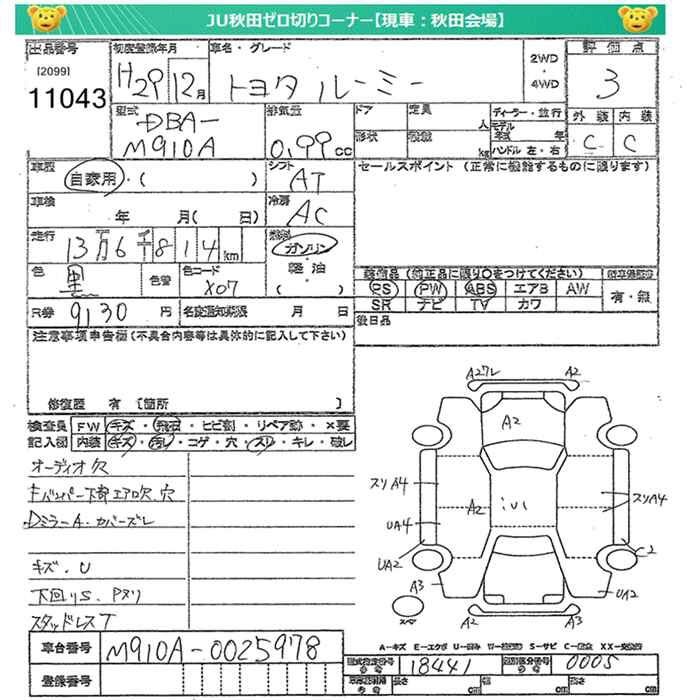 JU秋田ゼロ切りコーナー【現車：秋田会場】
出品番号 初度登録年月 車名・グレード 2WD・4WD 評価点
[2099]
11043 H29 12月 トヨタ ルーミー 3
型式 排気量 ドア 定員 人 ディーラー・並行 外装 内装
DBA-
M910A 0.99cc 形状 積載 kg モデル年式 年 ハンドル 左・右 C C
車歴 自家用・( ) シフト AT セールスポイント (正常に機能するものに限ります)
車検 年 月( 日) 冷房 AC
走行 13万6千814km 燃料 ガソリン・軽油・( )
色 黒 色替 色コード X07 装備品 (純正品に限り○をつけてください)
PS PW ABS エアB AW 有・無
SR ナビ TV カワ
R券 9130円 名変通知期限 月 日 後日品
注意事項申告欄 (不具合内容等は具体的に記入して下さい)
修復歴 有 [箇所 ]
検査員 FW キズ・飛石・ヒビ割・リペア跡・×要
記入図 内装 キズ・汚レ・コゲ・穴・スリ・キレ・破レ
オーディオ欠
Fバンパー下部エアロ欠.穴
DミラーA.カバーズレ
キズ.U
下回りS.Pヌリ
スタッドレスT
A2ワレ A2
A2
スリA4 A2 ;U1 スリA4
UA4
UA2 C2
A3 UA2
スペア A2 A3
A-キズ E-エクボ U-凹み W-補修跡 S-サビ C-腐食 XX-交換済
車台番号 M910A-0025978 型式指定番号 18441 類別区分番号 0005
登録番号 長さ cm 幅 cm 高さ cm